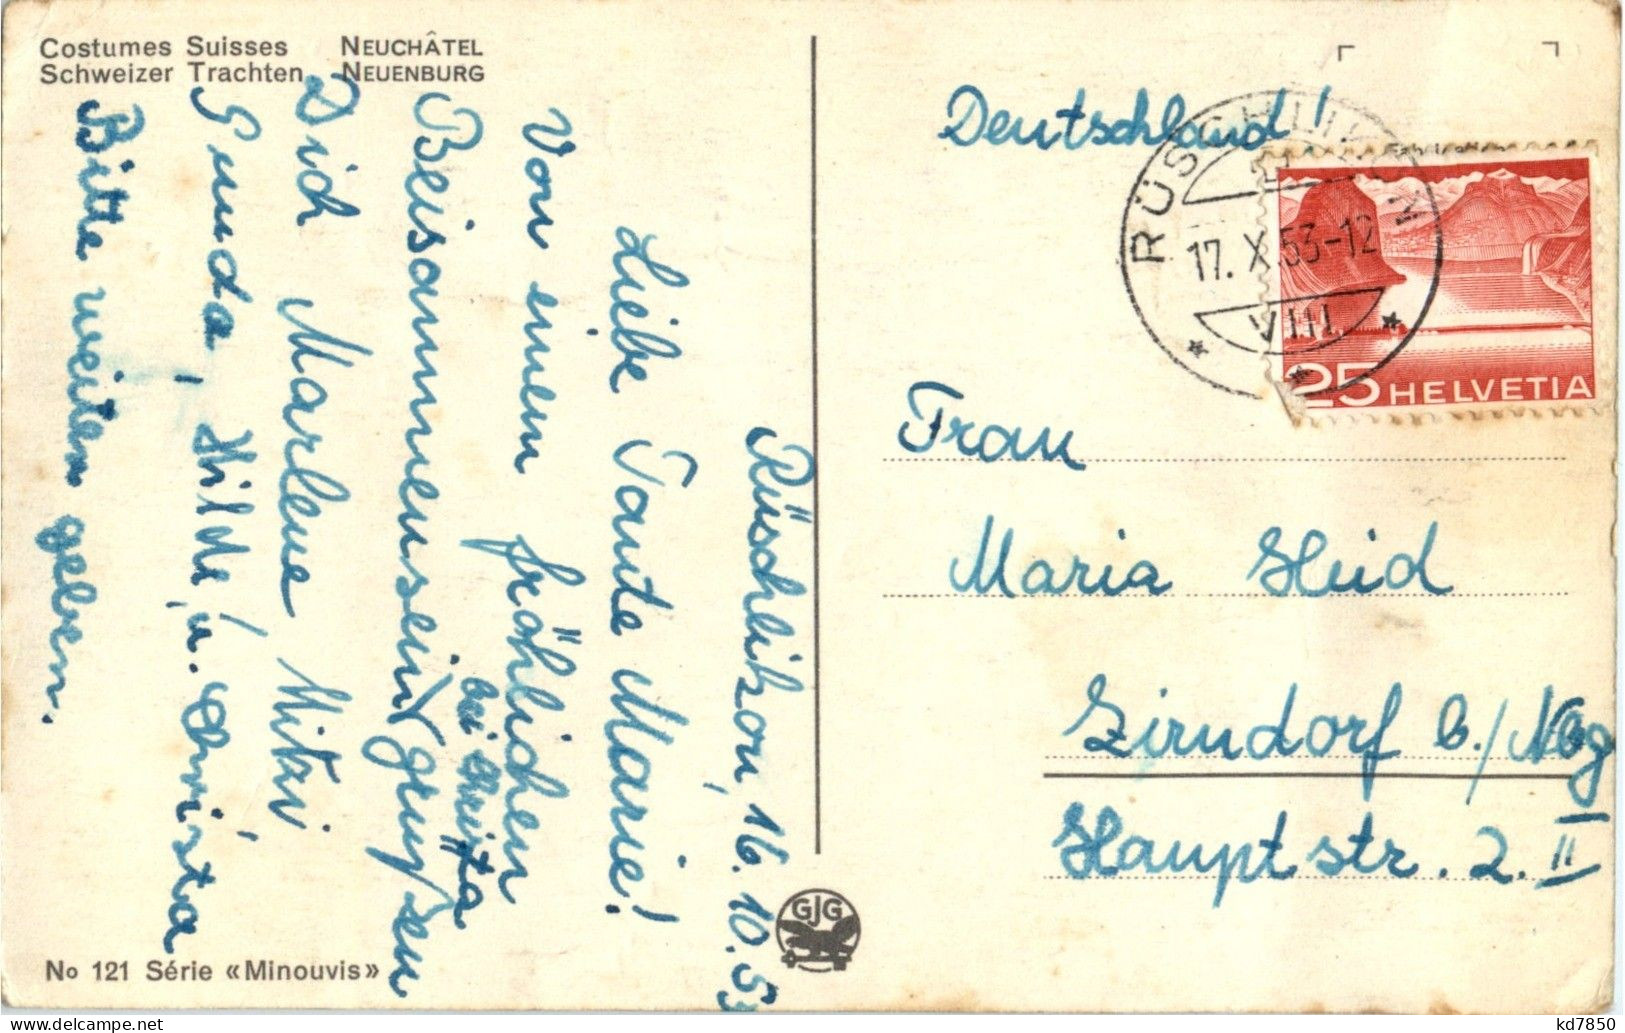 Costumes Suisses NEUCHÂTEL
Schweizer Trachten NEUENBURG
Rüschlikon, 16.10.53
Liebe Tante Marie!
Von einem fröhlichen
bei Christa
Beisammensein grüßen
Dich Marlene Mitzi
Gunda, Hilde, u. Christa
Bitte weiter geben.
No 121 Série «Minouvis»
GJG
Deutschland!
RÜSCHLIKON
17.X.53-12
VIII
25 HELVETIA
Frau
Maria Heid
Zirndorf b./Nbg
Hauptstr. 2. II
kd7850